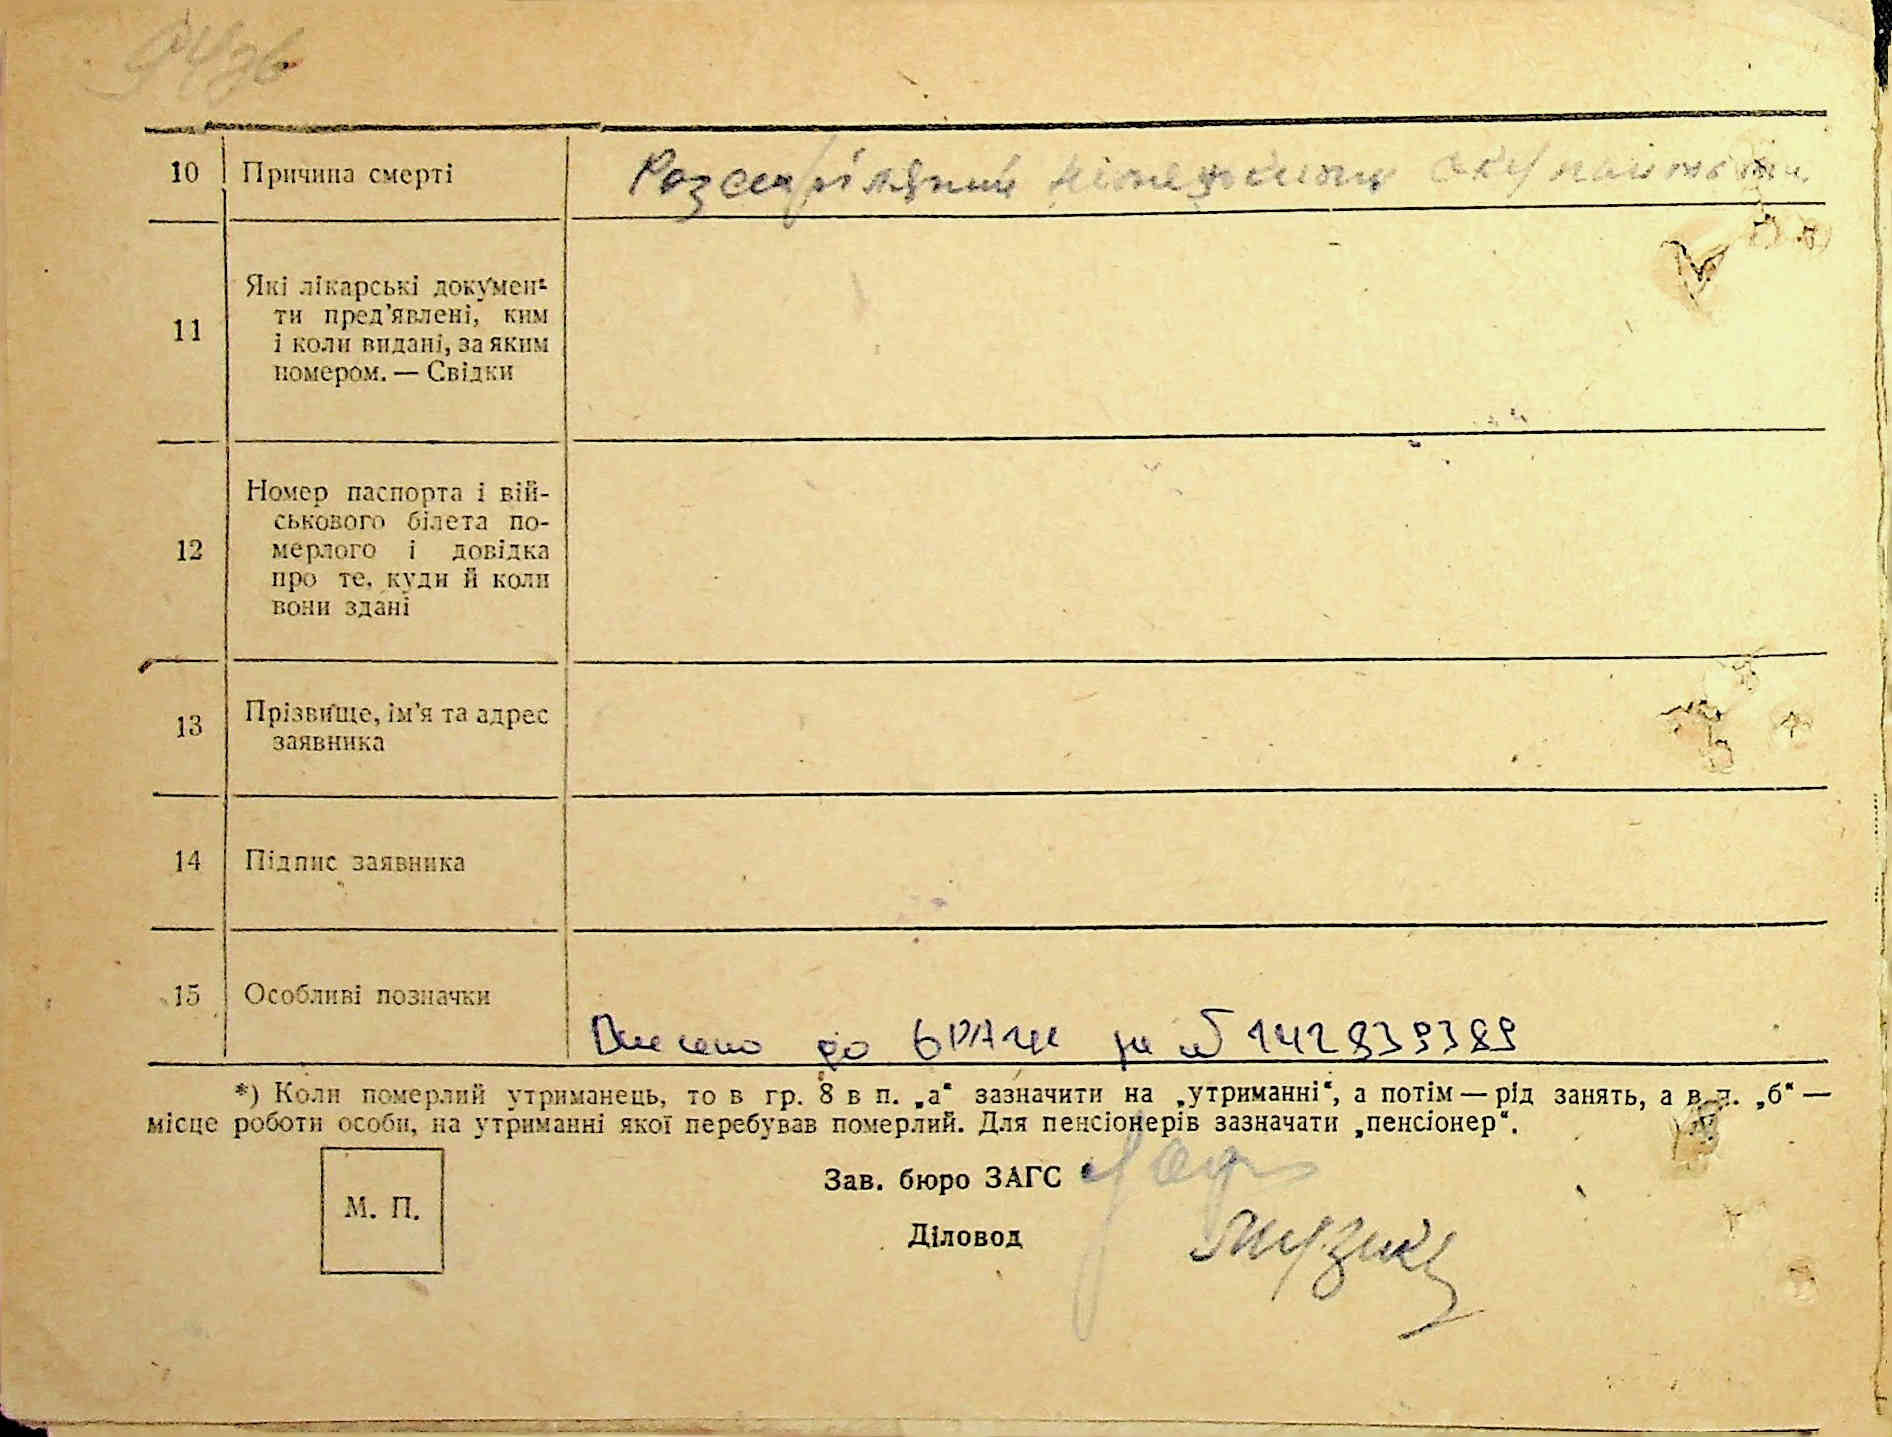 10 Причина смерті Розстріляний німецькими окупантами.
11 Які лікарські докумен-
ти пред'явлені, ким
і коли видані, за яким
номером. — Свідки
12 Номер паспорта і вій-
ськового білета по-
мерлого і довідка
про те, куди й коли
вони здані
13 Прізвище, ім'я та адрес
заявника
14 Підпис заявника
15 Особливі позначки
Внесено до ДРАЦС за №
*) Коли померлий утриманець, то в гр. 8 в п. „а“ зазначити на „утриманні“, а потім — рід занять, а в п. „б“ —
місце роботи особи, на утриманні якої перебував померлий. Для пенсіонерів зазначати „пенсіонер“.
М. П.
Зав. бюро ЗАГС
Діловод